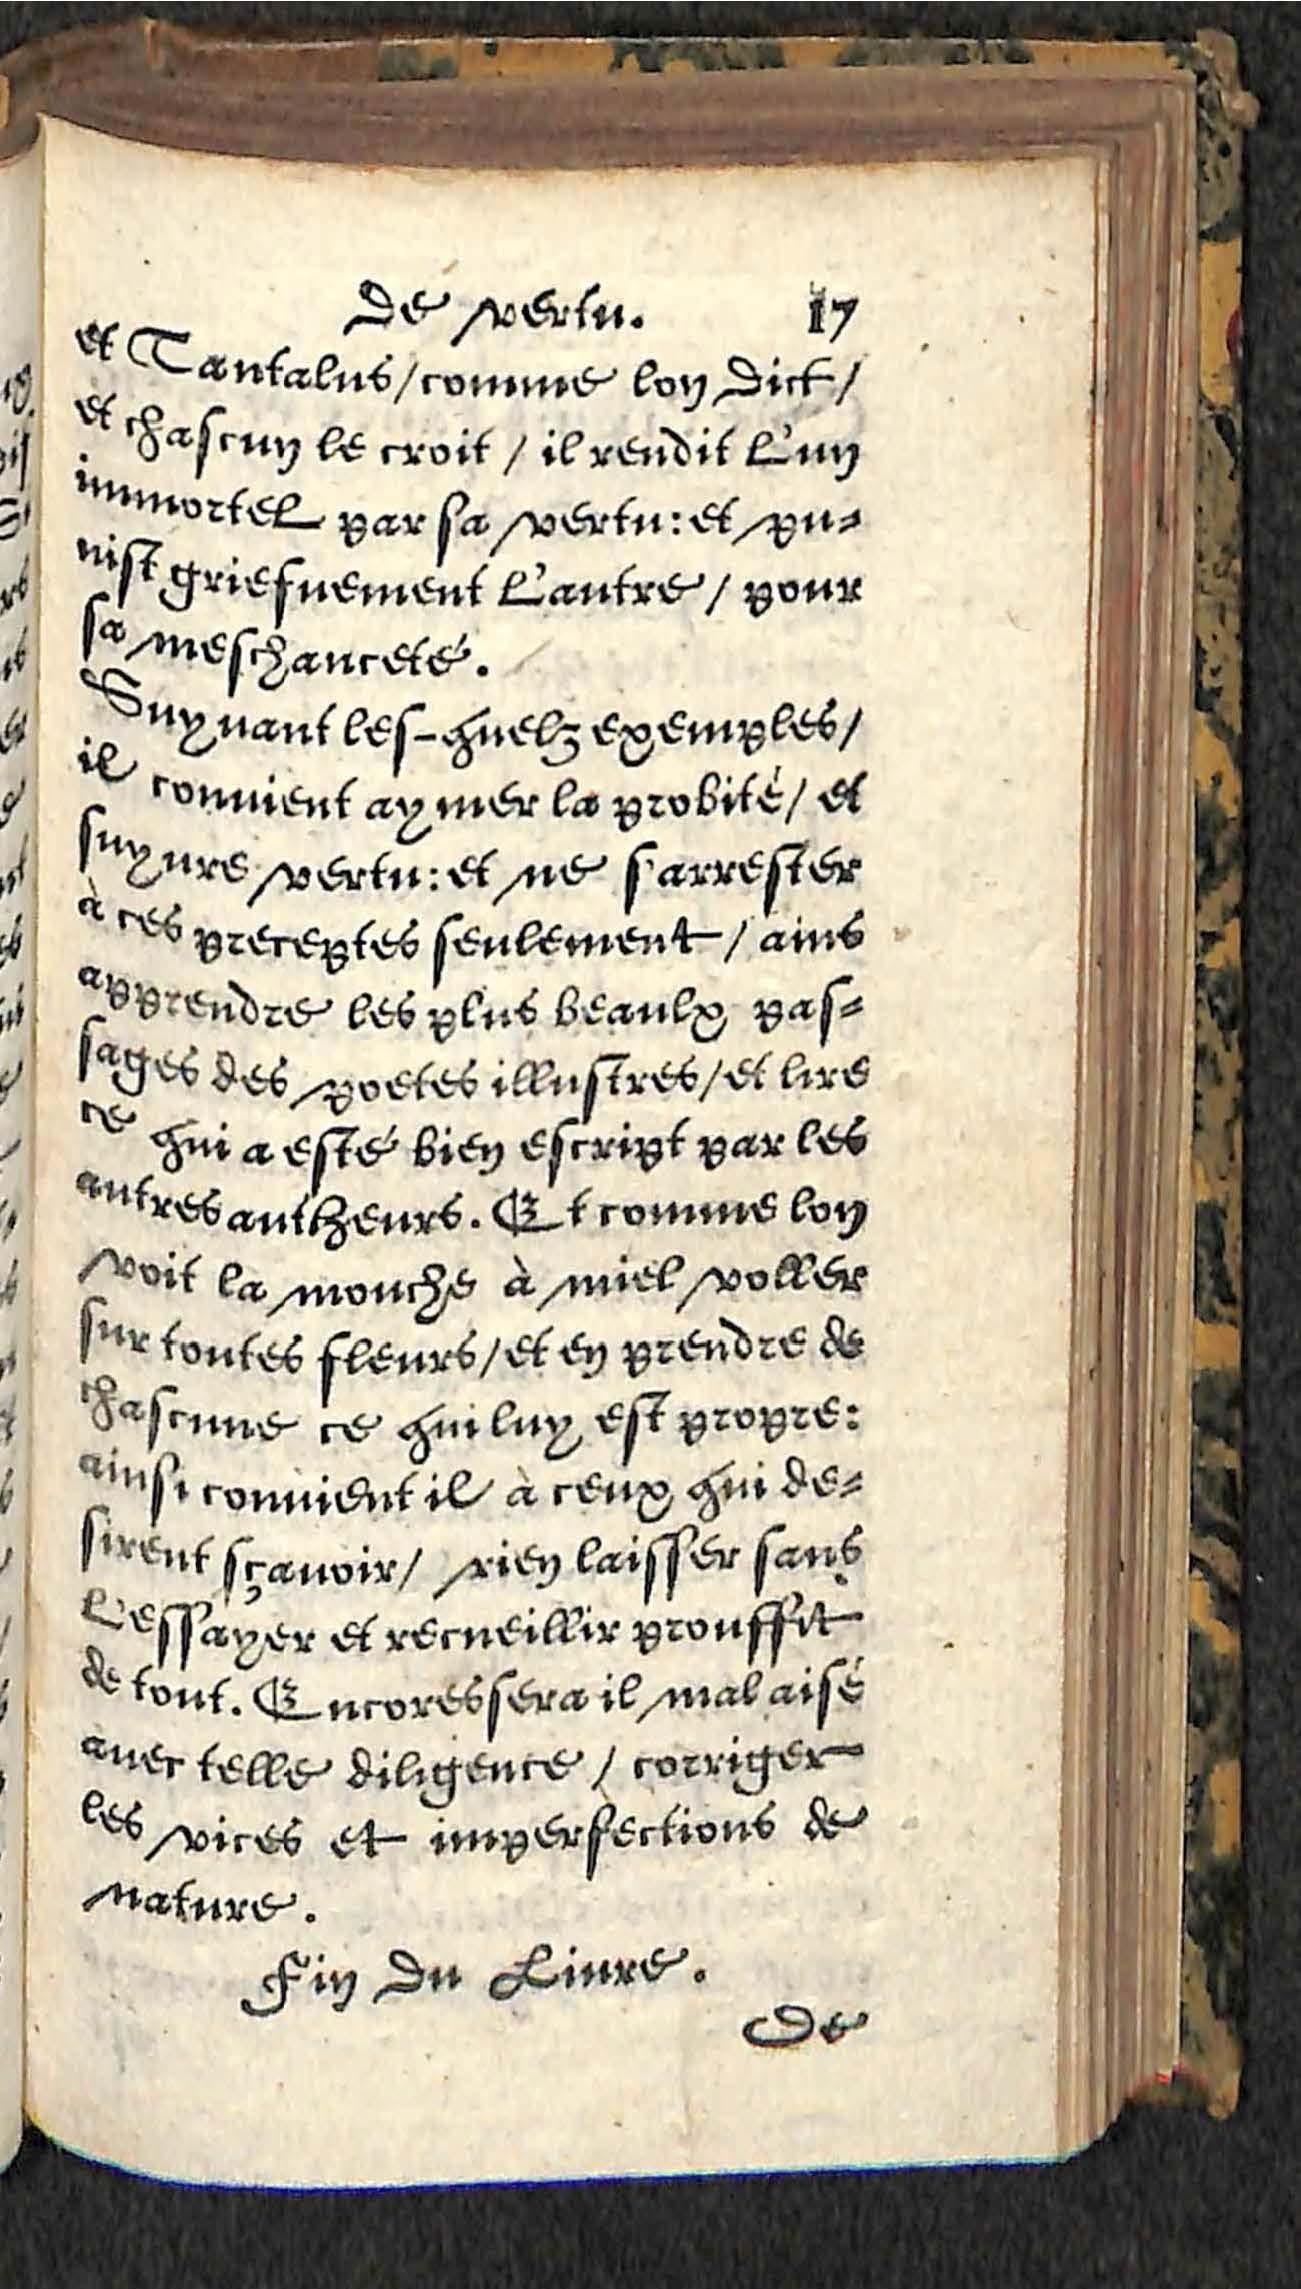 De vertu. 17
et Tantalus/comme lon dict/
et chascun le croit / il rendit l'un
immortel par sa vertu: et pu-
nist griefuement l'autre / pour
sa meschanceté.
Suyuant les-quelz exemples/
il conuient aymer la probité/ et
suyure vertu: et ne s'arrester
à ces preceptes seulement / ains
apprendre les plus beaulx pas-
sages des poetes illustres/et lire
ce qui a esté bien escript par les
autres autheurs. Et comme lon
voit la mouche à miel voller
sur toutes fleurs/et en prendre de
chascune ce qui luy est propre:
ainsi conuient il à ceux qui de-
sirent sçauoir/ rien laisser sans
l'essayer et recueillir prouffit
de tout. Encores sera il mal aisé
auec telle diligence / corriger
les vices et imperfections de
nature.
Fin du Liure.
De